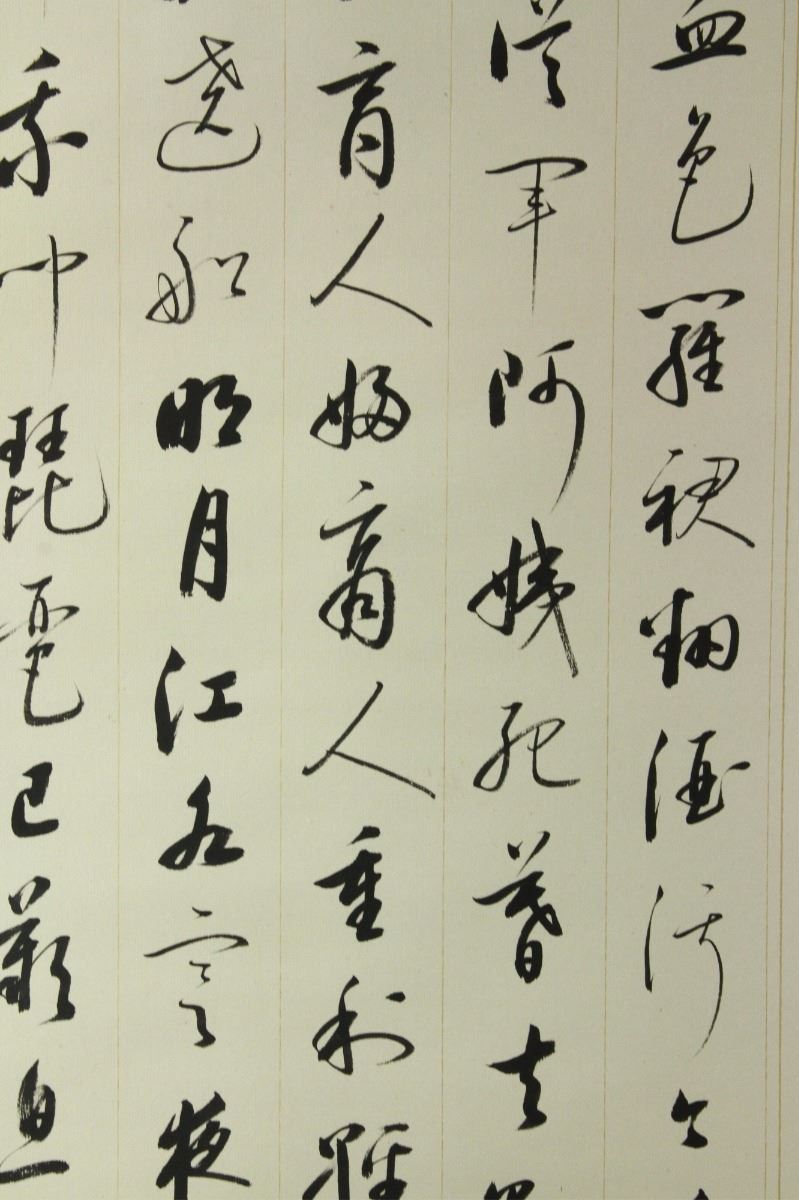 血色羅裙翻酒污今
從軍阿姨死暮去
商人婦商人重利輕
遶船明月江水寒夜
我聞琵琶已歎息